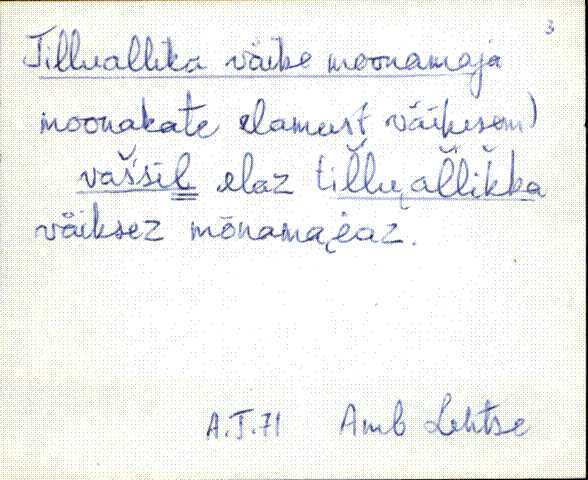 3
Tilluallika väike moonamaja
moonakate elamust väiksem)
vaššil elaz tilluallikka
väiksez mōnamajaz.
A.J.71 Amb Lehtse